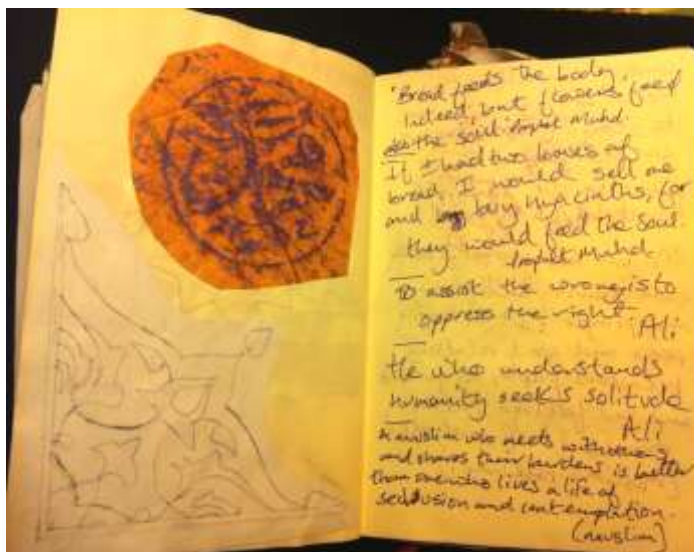 "Bread feeds the body,
Indeed, but flowers feed
also the soul. Prophet Muhd.
If I had two loaves of
bread, I would sell one
and buy hyacinths, for
they would feed the Soul
Prophet Muhd
To assist the wrong is to
oppress the right -
Ali
He who understands
humanity seeks solitude
Ali
A muslim who meets with others
and shares their burdens is better
than one who lives a life of
seclusion and contemplation.
(muslim)